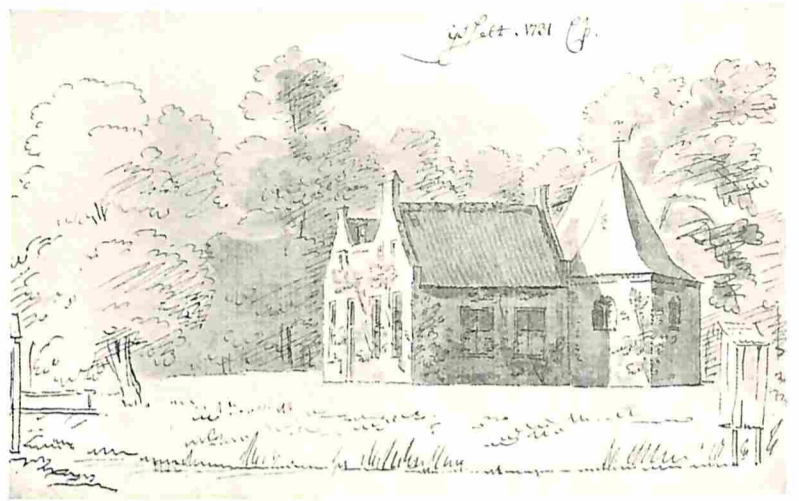 ijsselt . 1731 CP.